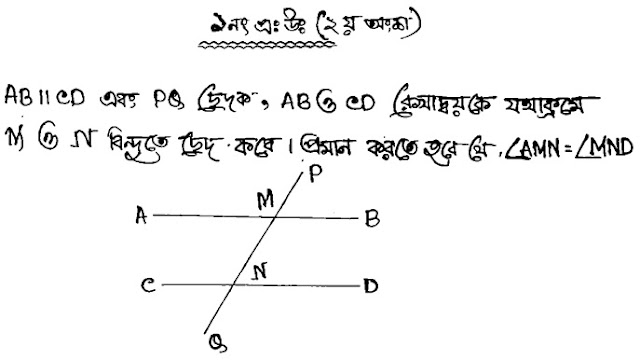 ১নং প্রঃ উঃ (২য় অংশ)
AB || CD এবং PQ ছেদক, AB ও CD রেখাদ্বয়কে যথাক্রমে
M ও N বিন্দুতে ছেদ করে। প্রমান করতে হবে যে, ∠AMN = ∠MND
P
M
A B
N
C D
Q